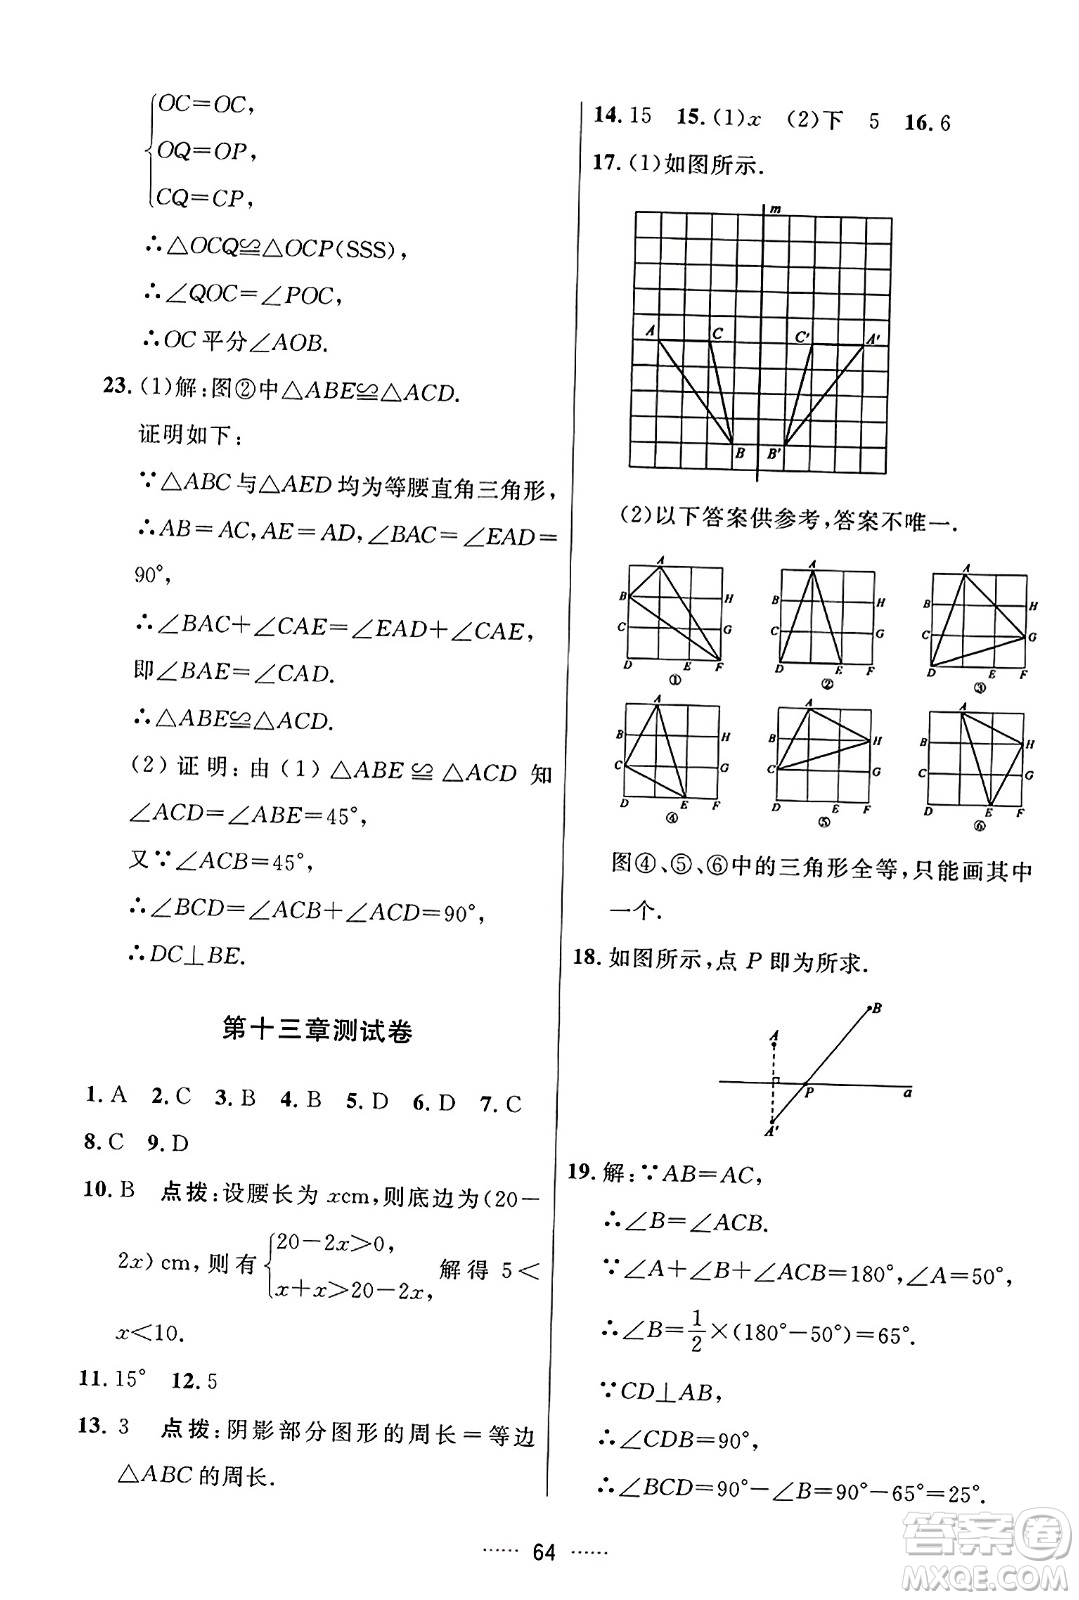 OC=OC,
OQ=OP,
CQ=CP,
∴△OCQ≌△OCP(SSS),
∴∠QOC=∠POC,
∴OC 平分∠AOB.
23.(1)解:图②中△ABE≌△ACD.
证明如下:
∵△ABC 与△AED 均为等腰直角三角形,
∴AB=AC,AE=AD,∠BAC=∠EAD=
90°,
∴∠BAC+∠CAE=∠EAD+∠CAE,
即∠BAE=∠CAD.
∴△ABE≌△ACD.
(2) 证明: 由 (1) △ABE ≌ △ACD 知
∠ACD=∠ABE=45°,
又∵∠ACB=45°,
∴∠BCD=∠ACB+∠ACD=90°,
∴DC⊥BE.
第十三章测试卷
1. A 2. C 3. B 4. B 5. D 6. D 7. C
8. C 9. D
10. B 点拨:设腰长为 xcm,则底边为(20-
2x) cm,则有 {20-2x>0, x+x>20-2x, 解得 5<
x<10.
11. 15° 12. 5
13. 3 点拨:阴影部分图形的周长=等边
△ABC 的周长.
14. 15 15. (1)x (2)下 5 16. 6
17. (1)如图所示.
m
A C C' A'
B B'
(2)以下答案供参考,答案不唯一.
A A A
B H B H B H
C G C G C G
D E F D E F D E F
① ② ③
A A A
B H B H B H
C G C G C G
D E F D E F D E F
④ ⑤ ⑥
图④、⑤、⑥中的三角形全等,只能画其中
一个.
18. 如图所示,点 P 即为所求.
B
A
P a
A'
19. 解:∵AB=AC,
∴∠B=∠ACB.
∵∠A+∠B+∠ACB=180°,∠A=50°,
∴∠B=1/2×(180°-50°)=65°.
∵CD⊥AB,
∴∠CDB=90°,
∴∠BCD=90°-∠B=90°-65°=25°.
······ 64 ······
答案圈
MXQE.COM